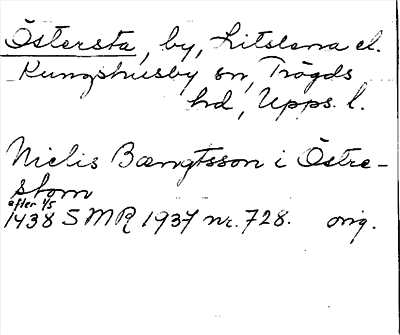 Östersta, by, Litslena el.
Kungshusby sn, Trögds
hd, Upps. l.
Nielis Bængtsson i Östre-
stom
efter 1/5
1438 SMR 1937 nr. 728. orig.